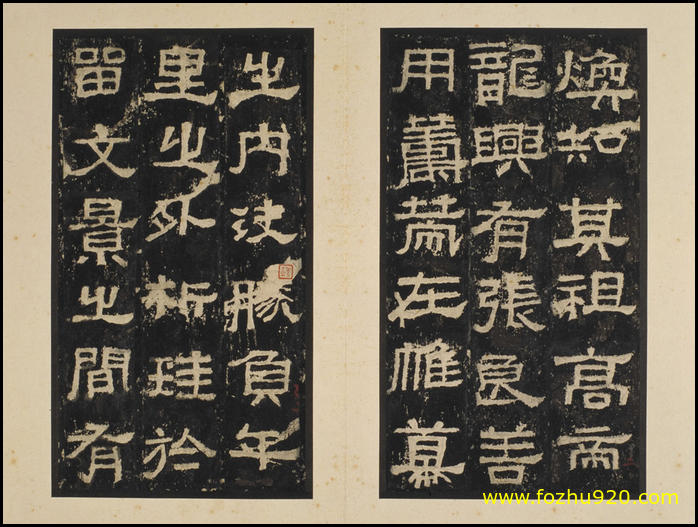 煥知其祖高帝
龍興有張良善
用籌策在帷幕
之內決勝負千
里之外析珪於
留文景之間有
www.fozhu920.com